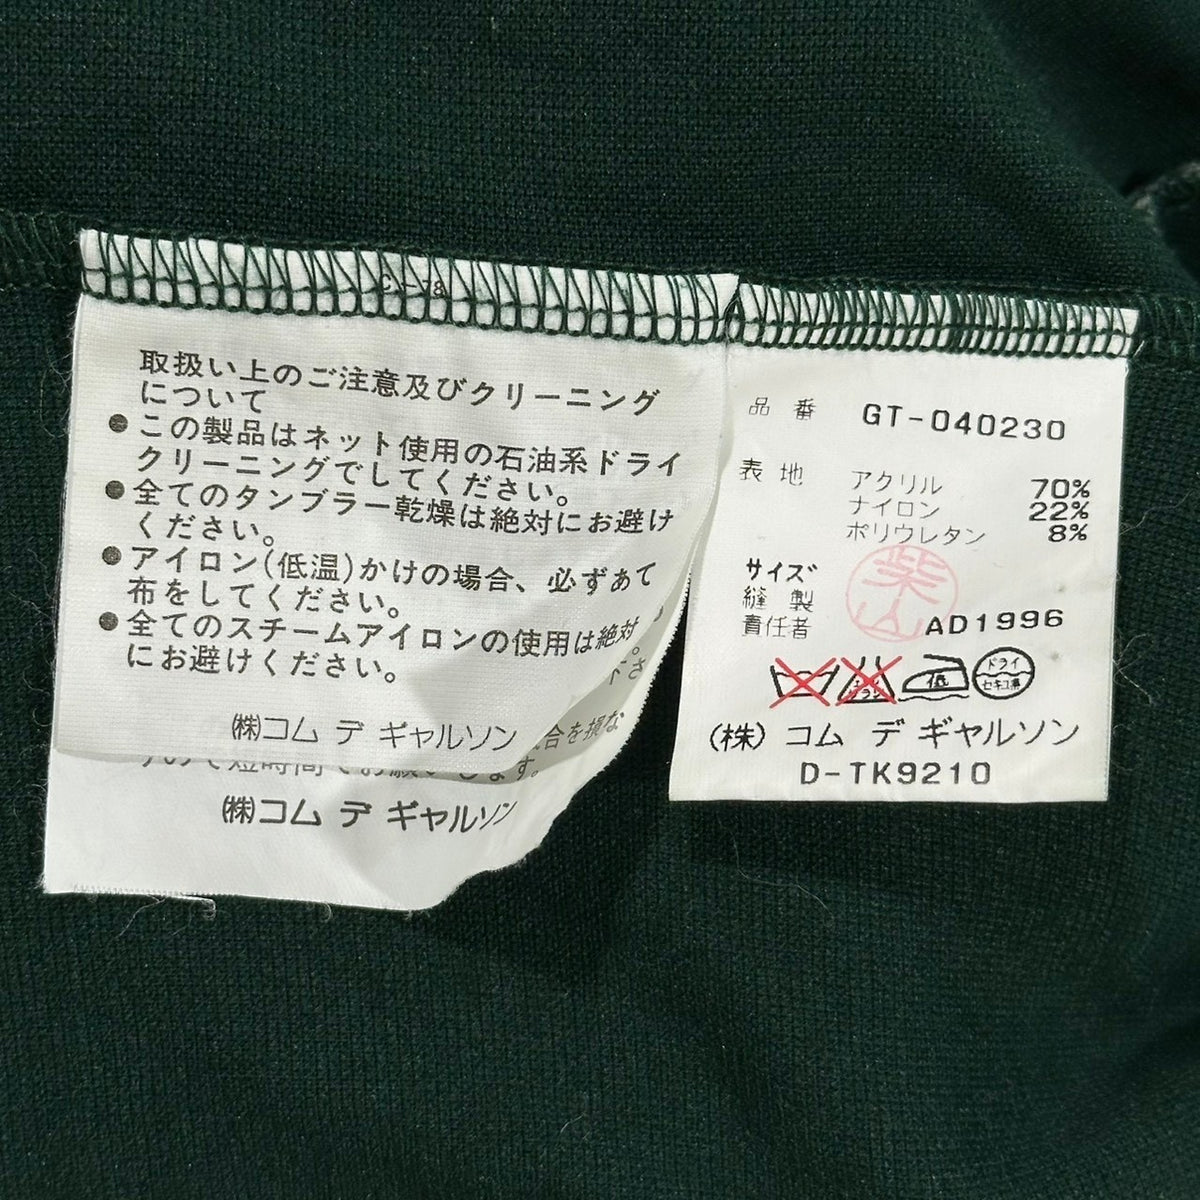 取扱い上のご注意及びクリーニング
について
●この製品はネット使用の石油系ドライ
クリーニングでしてください。
●全てのタンブラー乾燥は絶対にお避け
ください。
●アイロン(低温)かけの場合、必ずあて
布をしてください。
●全てのスチームアイロンの使用は絶対
にお避けください。
下さ
㈱コム デ ギャルソン
合を損な
㈱コム デ ギャルソン
品番 GT-040230
表地 アクリル 70%
ナイロン 22%
ポリウレタン 8%
サイズ
縫製
責任者
柴山
AD1996
低
ドライ
セキユ系
(株) コム デ ギャルソン
D-TK9210